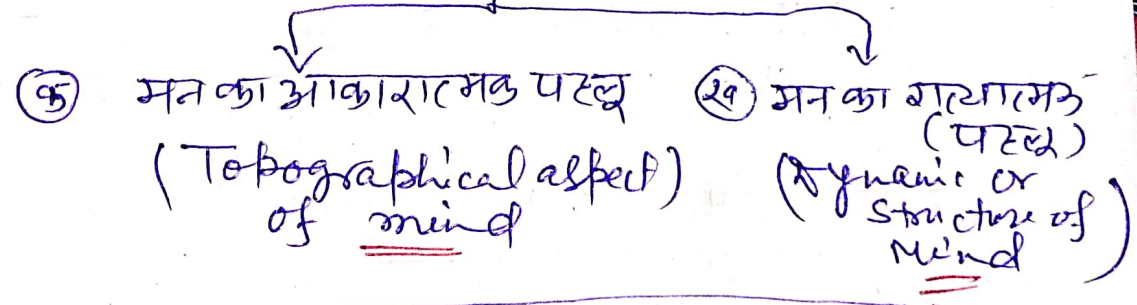 (क) मन का आकारात्मक पहलू
(Topographical aspect)
of mind
(ख) मन का गत्यात्मक
(पहलू)
(Dynamic or
Structure of)
Mind